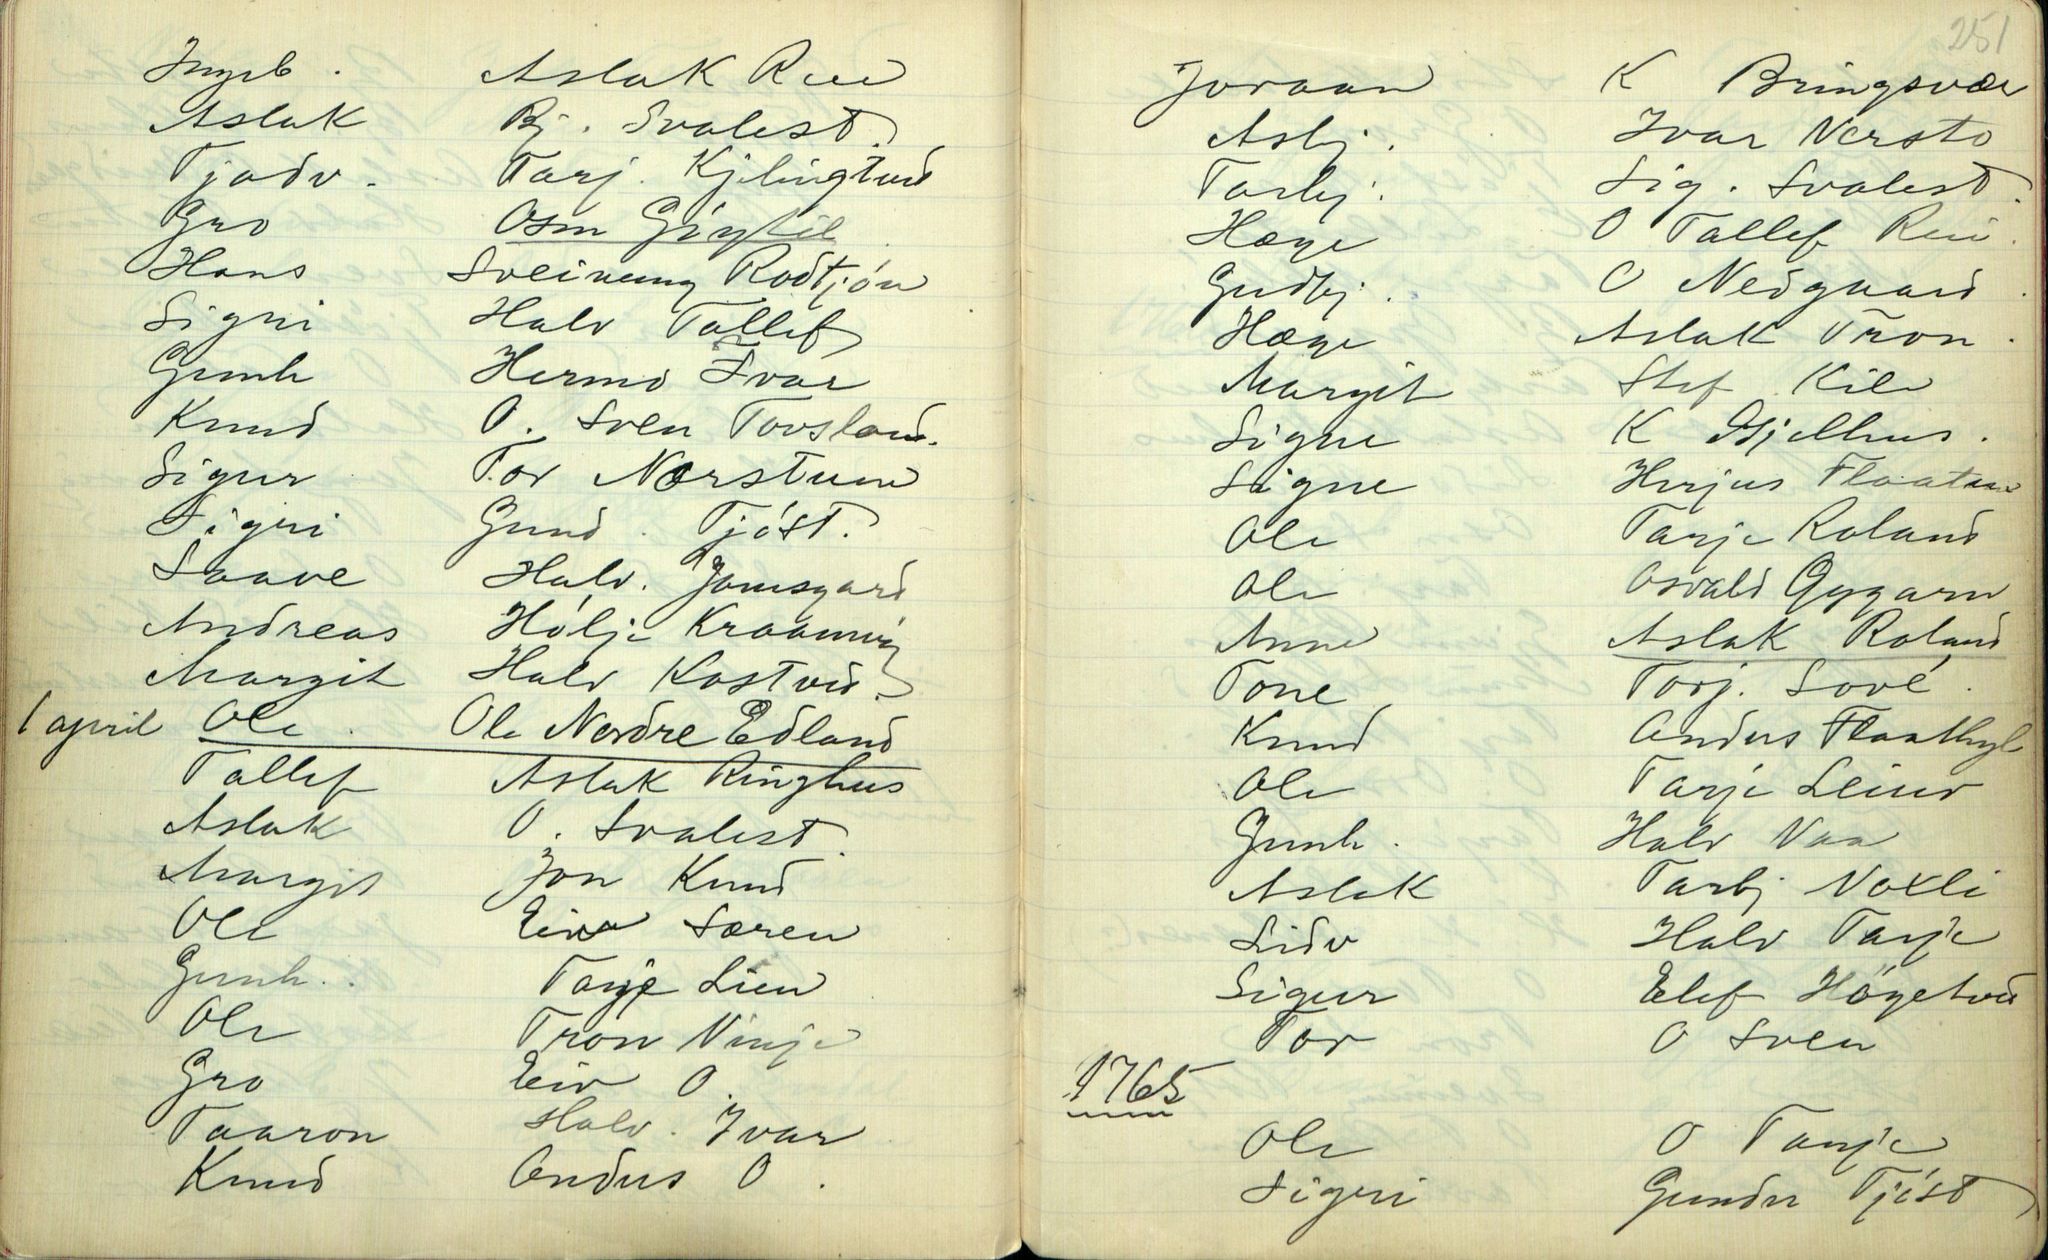 Ingeb. Aslak Rui
Aslak Bj. Svalest.
Tjodv. Tarj. Kjilingtvid
Gro Osm
Hans Sveinung Rodtjón
Signi Halv Tallef
Gunh Hermo Ivar
Knud O. Sven Tovsland.
Sigur Tor Nærstuen
Sigri Gund. Tjóst.
Saave Halv. Jomsgard
Andreas Hólje
Margit Halv Kostvid.
1 april Ole. Ole Nordre Edland
Tallef Aslak Ringhus
Aslak O. Svalest.
Margit Jon Knud
Ole Eiv Søren
Gunh. Tarje Lien
Ole Tron Vinje
Gro Eiv O.
Taaron Halv. Ivar
Knud Andus O.
251
Joraan K Bringsvær
Asbj. Ivar Nersto
Torbj. Sig. Svalest.
Hæge O Tallef Rui.
Gudbj. O Nedgaard.
Hæge Aslak Tron.
Margit Stef Kile
Signe K Gjelhus.
Signe Herjus Flaatin
Ole Tarje Roland
Ole Osvald Gygarn
Anne Aslak Roland
Tone Torj. Sové.
Knud Andus Flaathyl
Ole Tarje Leiur
Gunh. Halv Vaa
Aslak Tarbj Voxli
Lidv Halv Tarje
Sigur Elef Hógetvid
Tor O Sven
1765
Ole O Tarje
Sigri Gunder Tjóst